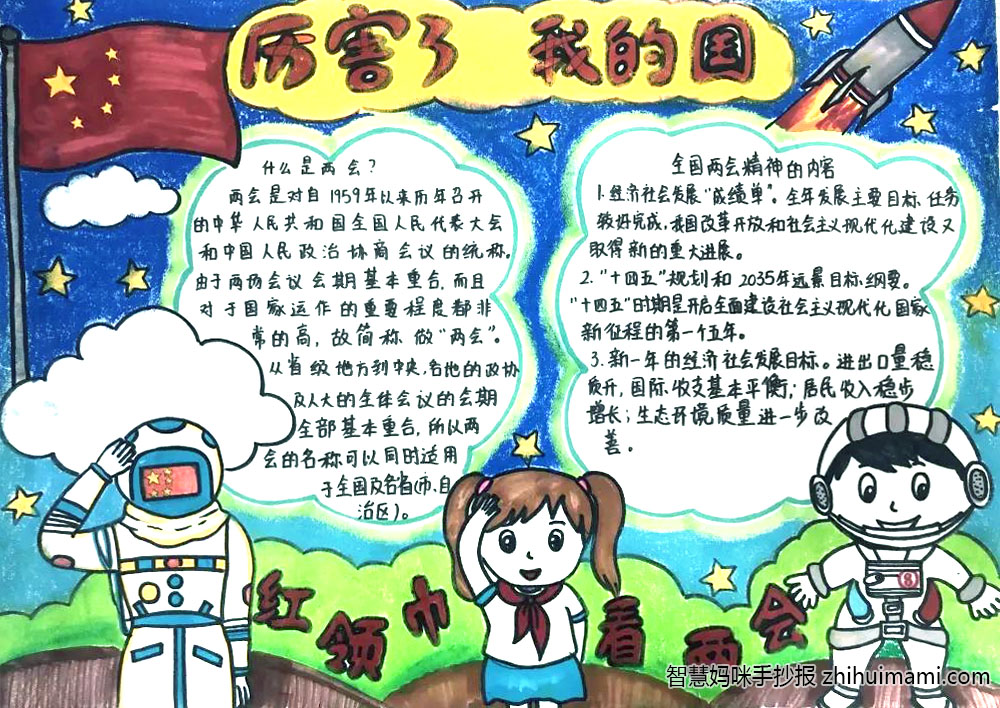 厉害了 我的国
什么是两会？
两会是对自1959年以来历年召开
的中华人民共和国全国人民代表大会
和中国人民政治协商会议的统称。
由于两场会议会期基本重合，而且
对于国家运作的重要程度都非
常的高，故简称做“两会”。
从省级地方到中央，各地的政协
及人大的全体会议的会期
全部基本重合，所以两
会的名称可以同时适用
于全国及各省(市、自
治区)。
全国两会精神的内容
1.经济社会发展“成绩单”。全年发展主要目标任务
较好完成，我国改革开放和社会主义现代化建设又
取得新的重大进展。
2.“十四五”规划和2035年远景目标纲要。
“十四五”时期是开启全面建设社会主义现代化国家
新征程的第一个五年。
3.新一年的经济社会发展目标。进出口量稳
质升，国际收支基本平衡；居民收入稳步
增长；生态环境质量进一步改
善。
红领巾看两会
智慧妈咪手抄报 zhihuimami.com